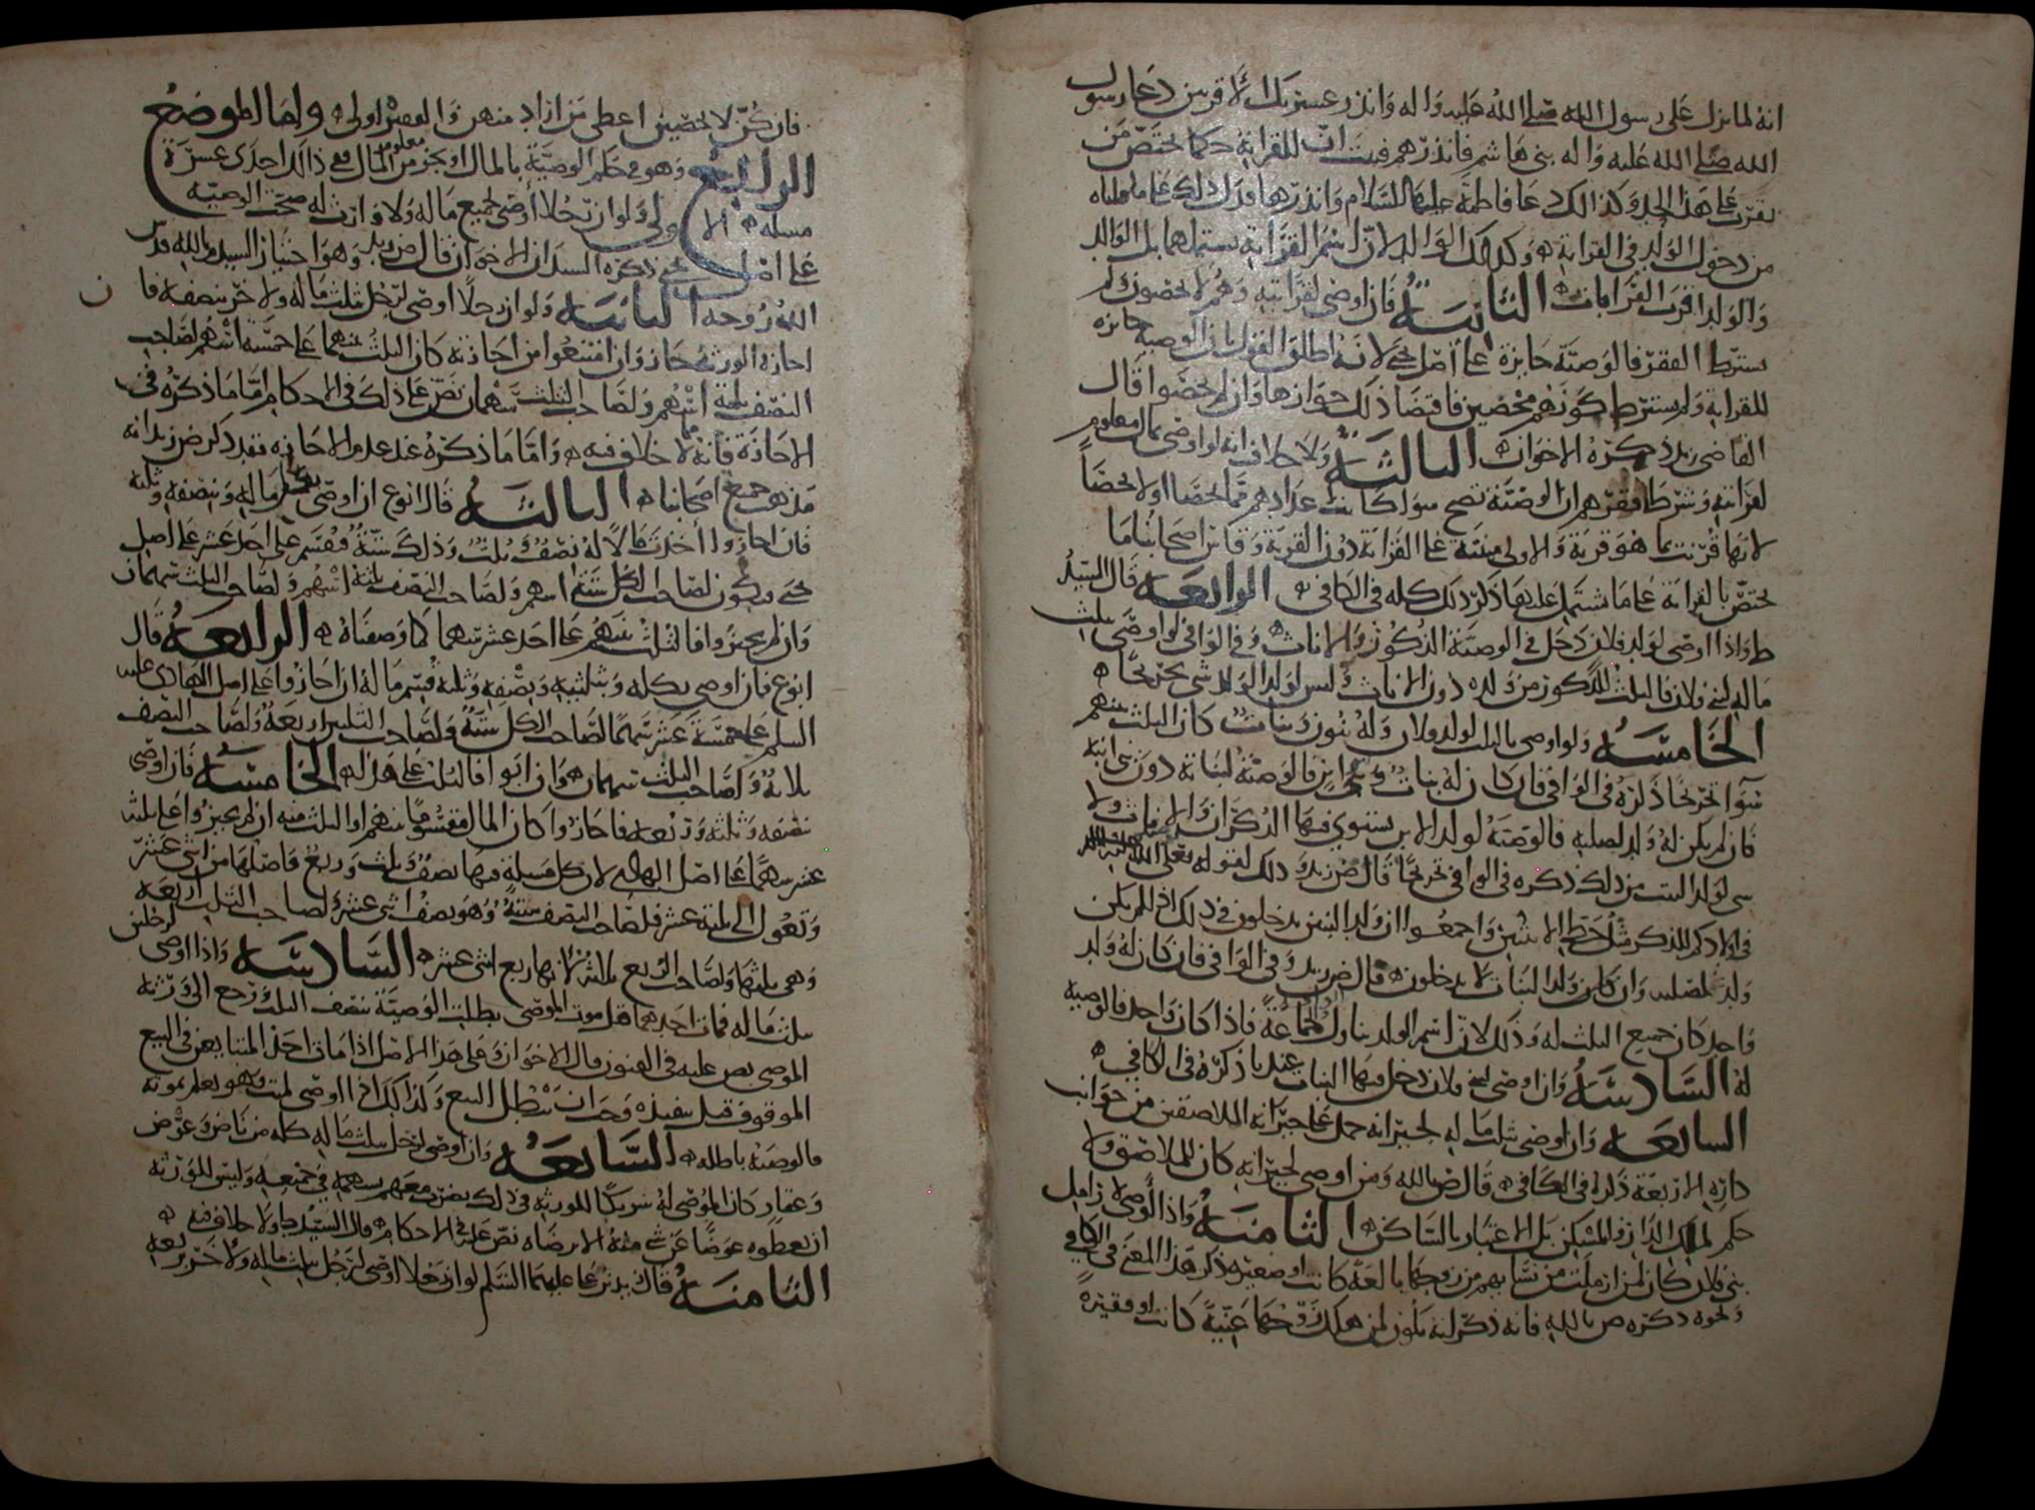 انه لما نزل على رسول الله صلى الله عليه واله وانذر عشيرتك الاقربين دعا رسول
الله صلى الله عليه واله بني هاشم فانذرهم فثبت ان للقرابة حكما يختص من
على هذا الحد وكذلك دعا فاطمة عليها السلام وانذرها فدل ذلك على ما قلناه
من دخول الولد في القرابة وكذلك الوالد لان اسم القرابة يشتملهما بل الوالد
والولد اقرب القرابات الثانية فان اوصى لقرابته وهم لا يحصون ولم
يشترط الفقر فالوصية جايزة على اصل يحيى لانه اطلق القول بان الوصية جايزة
للقرابة ولم يشترط كونهم محصين فاقتضا ذلك جوازها وان لم يحصوا قال
القاضي زيد ذكره الاخوان الثالثة ولا خلاف انه لو اوصى بمال معلوم
لقرابته وشرط فقرهم ان الوصية تصح سوا كانت عدادهم مما يحصا او لا يحصا
لانها قرنت بما هو قربة والاولى مبنية على القرابة دون القربة وقاس اصحابنا ما
يختص بالقرابة على ما اشتمل عليها ذكر ذلك كله في الكافي الرابعة قال السيد
ط واذا اوصى لولد فلان دخل في الوصية الذكور والاناث وفي الوافي لو اوصى بثلث
ماله لبني فلان فالثلث للذكور من ولده دون الاناث وليس لولد الولد شي تخريجا
الخامسة ولو اوصى بالثلث لولد فلان وله بنون وبنات كان الثلث بينهم
سوآ تخريجا ذكره في الوافي فان كان له بنات وبني ابن فالوصية لبناته دون بني ابنه
فان لم يكن له ولد لصلبه فالوصية لولد الابن يستوي فيها الذكران والاناث ولا
شي لولد البنت من ذلك ذكره في الوافي تخريجا قال ض زيد وذلك لقوله تعالى
في اولادكم للذكر مثل حظ الانثيين واجمعوا ان ولد البنين يدخلون في ذلك اذا لم يكن
ولد لصلبه وان كان ولد البنات لا يدخلون قال ض زيد وفي الوافي فان كان له ولد
واحد كان جميع الثلث له وذلك لان اسم الولد يتناول الجماعة فاذا كان واحد فالوصية
له السادسة وان اوصى لبني فلان دخل فيها البنات عند ذكره في الكافي
السابعة وان اوصى بثلث ماله لجيرانه حمل على جيرانه الملاصقين من جوانب
داره الاربعة ذكره في الكافي قال ض بالله ومن اوصى لجيرانه كان للملاصق ولا
حكم لملك الدار والمسكن بل الاعتبار بالساكن الثامنة واذا اوصى لارامل
بني فلان كان لمن ارملت من نسايهم من زوجها بالغة كانت او صغيرة ذكر هذا المعنى في الكافي
ونحوه ذكره ص بالله فانه ذكر انه يكون لمن هلك زوجها غنية كانت او فقيرة
فان كن لا يحصين اعطى من اراد منهن والفقير اولى واما الموضع
الرابع وهو في حكم الوصية بالمال او بجزء معلوم من المال ففي ذلك احدى عشرة
مسلة الاولى ولو ان رجلا أوصى بجميع ماله ولا وارث له صحت الوصية
على اصل يحيى ذكره السيدان الاخوان قال ض زيد وهو اختيار السيد م بالله قدس
الله روحه الثانية ولو ان رجلا اوصى لرجل بثلث ماله ولاخر بنصفه فان
اجازه الورثة جاز وان امتنعوا من اجازته كان الثلث بينهما على خمسة اسهم لصاحب
النصف ثلثة اسهم ولصاحب الثلث سهمان نص على ذلك في الاحكام اما ما ذكره في
الاجازة فانه مما لا خلاف فيه واما ما ذكره عند عدم الاجازة فقد ذكر ض زيد انه
مذهب جميع اصحابنا الثالثة قال ابوع ان اوصى بكل ماله وبنصفه وثلثه
فان اجازوا اخذت مالا له نصف وثلث وذلك ستة فقسم على احد عشر على اصل
يحيى ويكون لصاحب الكل ستة اسهم ولصاحب النصف ثلثة اسهم ولصاحب الثلث سهمان
وان لم يجيزوا فالثلث بينهم على احد عشر سهما كما وصفناه الرابعة قال
ابوع فان اوصى بكله وبثلثيه وبنصفه وثلثه قسم ماله ان اجازوا على اصل الهادي عليه
السلم على خمسة عشر سهما لصاحب الكل ستة ولصاحب الثلثين اربعة ولصاحب النصف
ثلاثة ولصاحب الثلث سهمان وان ابوا فالثلث على هذا الخامسة فان اوصى
بنصفه وثلثه وربعه فاجازوا كان المال مقسوما بينهم او الثلث منه ان لم يجيزوا على ثلثة
عشر سهما على اصل الهادي لان كل مسلة فيها نصف وثلث وربع فاصلها من اثني عشر
وتعول الى ثلثة عشر فلصاحب النصف ستة وهو نصف اثني عشر ولصاحب الثلث اربعة
وهي ثلثها ولصاحب الربع ثلثة لانها ربع اثني عشر السادسة واذا اوصى لرجلين
بثلث ماله فمات احدهما قبل موت الموصي بطلت الوصية بنصف الثلث ورجع الى ورثة
الموصي نص عليه في الفنون قال الاخوان وعلى هذا الاصل اذا مات احد المتبايعين في البيع
الموقوف قبل تنفيذه وجب ان يبطل البيع وكذلك اذا اوصى لميت وهو يعلم بموته
فالوصية باطلة السابعة وان اوصى لرجل بثلث ماله كله من ناض وعروض
وعقار كان الموصى له شريكا للورثة في ذلك يضرب معهم بسهمه في جميعه وليس للورثة
ان يعطوه عوضا عن شي منه الا برضاه نص عليه في الاحكام قال السيد ط ولا خلاف فيه
الثامنة قال زيد بن على عليهما السلم لو ان رجلا اوصى لرجل بثلث ماله ولاخر بربعه